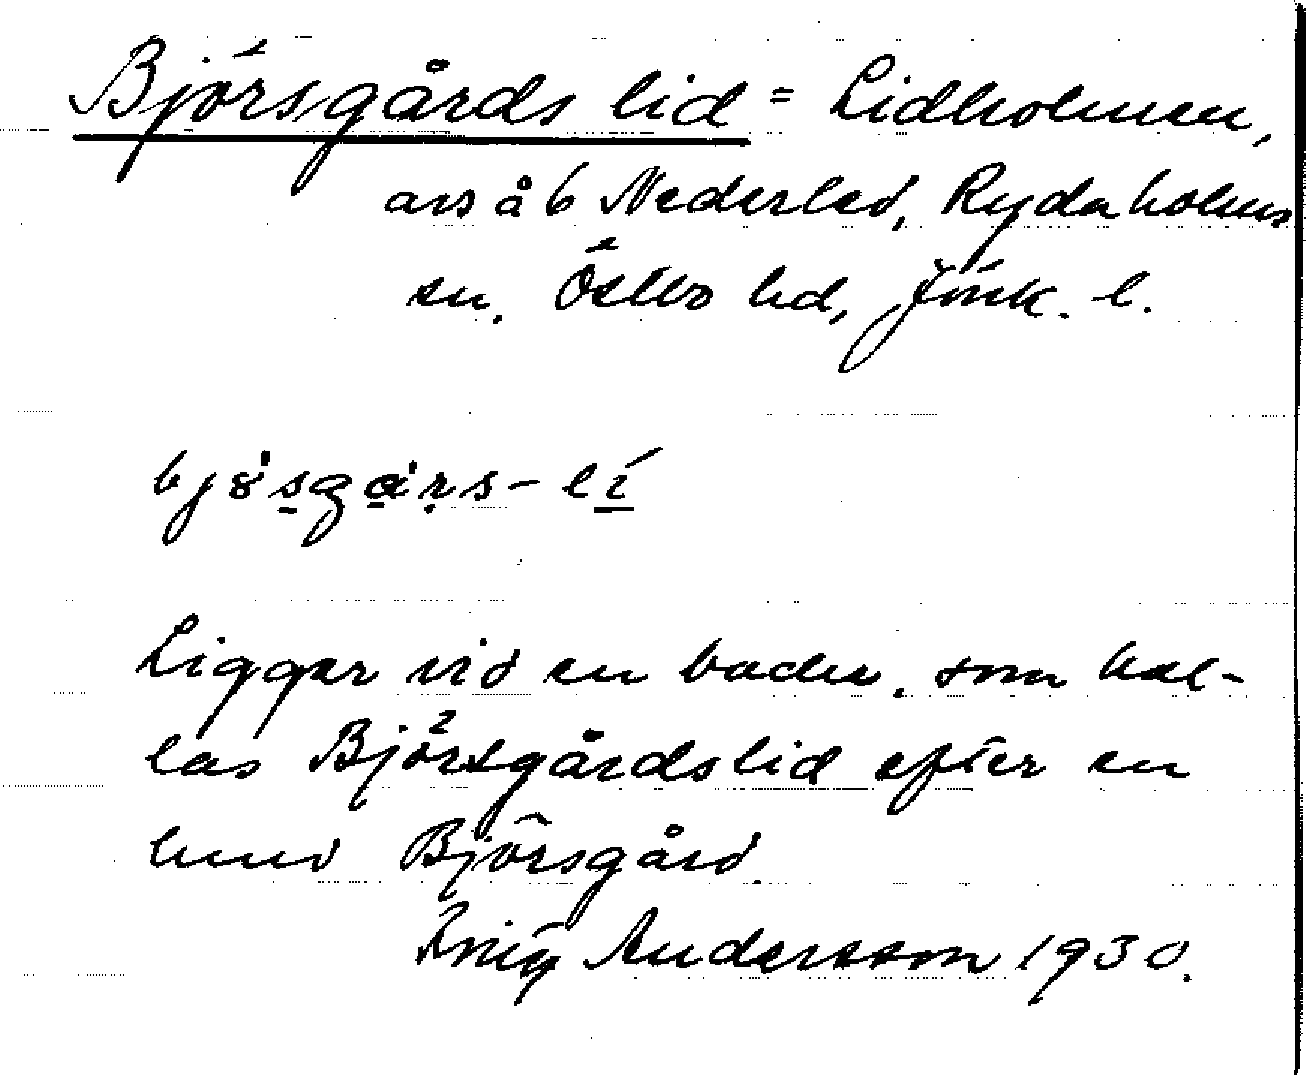 Björsgårds lid = Lidholmen,
avs å b Nederled, Rydaholms
sn, Östbo hd, Jönk. l.
bjösgårs-lí
Ligger vid en backe, som kal-
las Björsgårdslid efter en
hund Björsgård.
Andersson 1930.